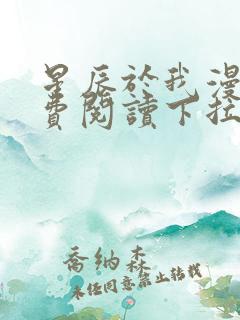 星辰於我漫
費閱讀下拉
喬納森
未經同意禁止轉載